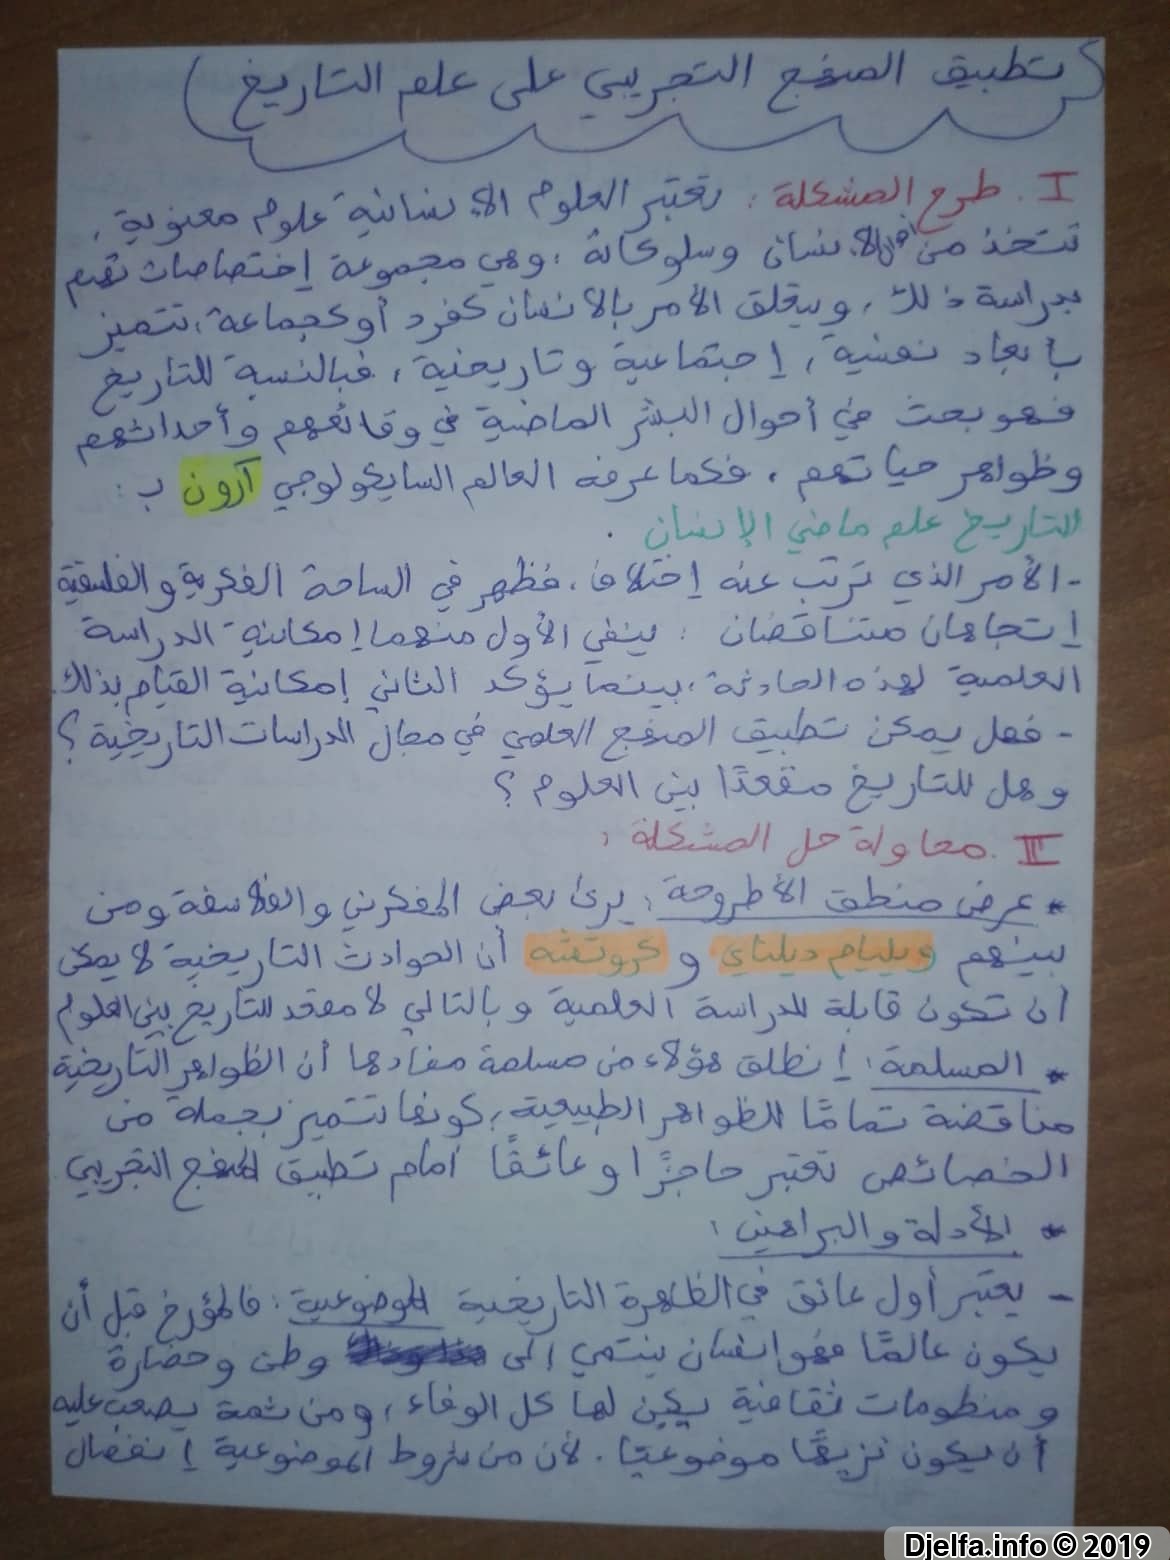 تطبيق المنهج التجريبي على علم التاريخ
I. طرح المشكلة: تعتبر العلوم الإنسانية علوم معنوية,
تتخذ من الإنسان وسلوكاته، وهي مجموعة إختصاصات تهتم
بدراسة ذلك، ويتعلق الأمر بالإنسان كفرد أو كجماعة، تتميز
بأبعاد نفسية، إجتماعية وتاريخية، فبالنسبة للتاريخ
فهو بحث في أحوال البشر الماضية في وقائعهم وأحداثهم
وظواهر حياتهم، فكما عرفه العالم السايكولوجي آرون ب:
التاريخ علم ماضي الإنسان.
- الأمر الذي ترتب عنه إختلاف، فظهر في الساحة الفكرية والفلسفية
إتجاهان متناقضان: ينفي الأول منهما إمكانية الدراسة
العلمية لهذه الحادثة، بينما يؤكد الثاني إمكانية القيام بذلك.
- فهل يمكن تطبيق المنهج العلمي في مجال الدراسات التاريخية؟
وهل للتاريخ مقعدًا بين العلوم؟
II. محاولة حل المشكلة:
* عرض منطق الأطروحة: يرى بعض المفكرين والفلاسفة ومن
بينهم ويليام ديلتاي و كروتشه أن الحوادث التاريخية لا يمكن
أن تكون قابلة للدراسة العلمية وبالتالي لا مقعد للتاريخ بين العلوم
* المسلمة: إنطلق هؤلاء من مسلمة مفادها أن الظواهر التاريخية
مناقضة تمامًا للظواهر الطبيعية، كونها تتميز بجملة من
الخصائص تعتبر حاجزًا أو عائقًا أمام تطبيق المنهج التجريبي
* الأدلة والبراهين:
- يعتبر أول عائق في الظاهرة التاريخية الموضوعية: فالمؤرخ قبل أن
يكون عالمًا فهو إنسان ينتمي إلى وطن وحضارة
ومنظومات ثقافية يكن لها كل الوفاء، ومن ثمة يصعب عليه
أن يكون نزيهًا موضوعيًا. لأن من شروط الموضوعية إنفصال
Djelfa.info © 2019